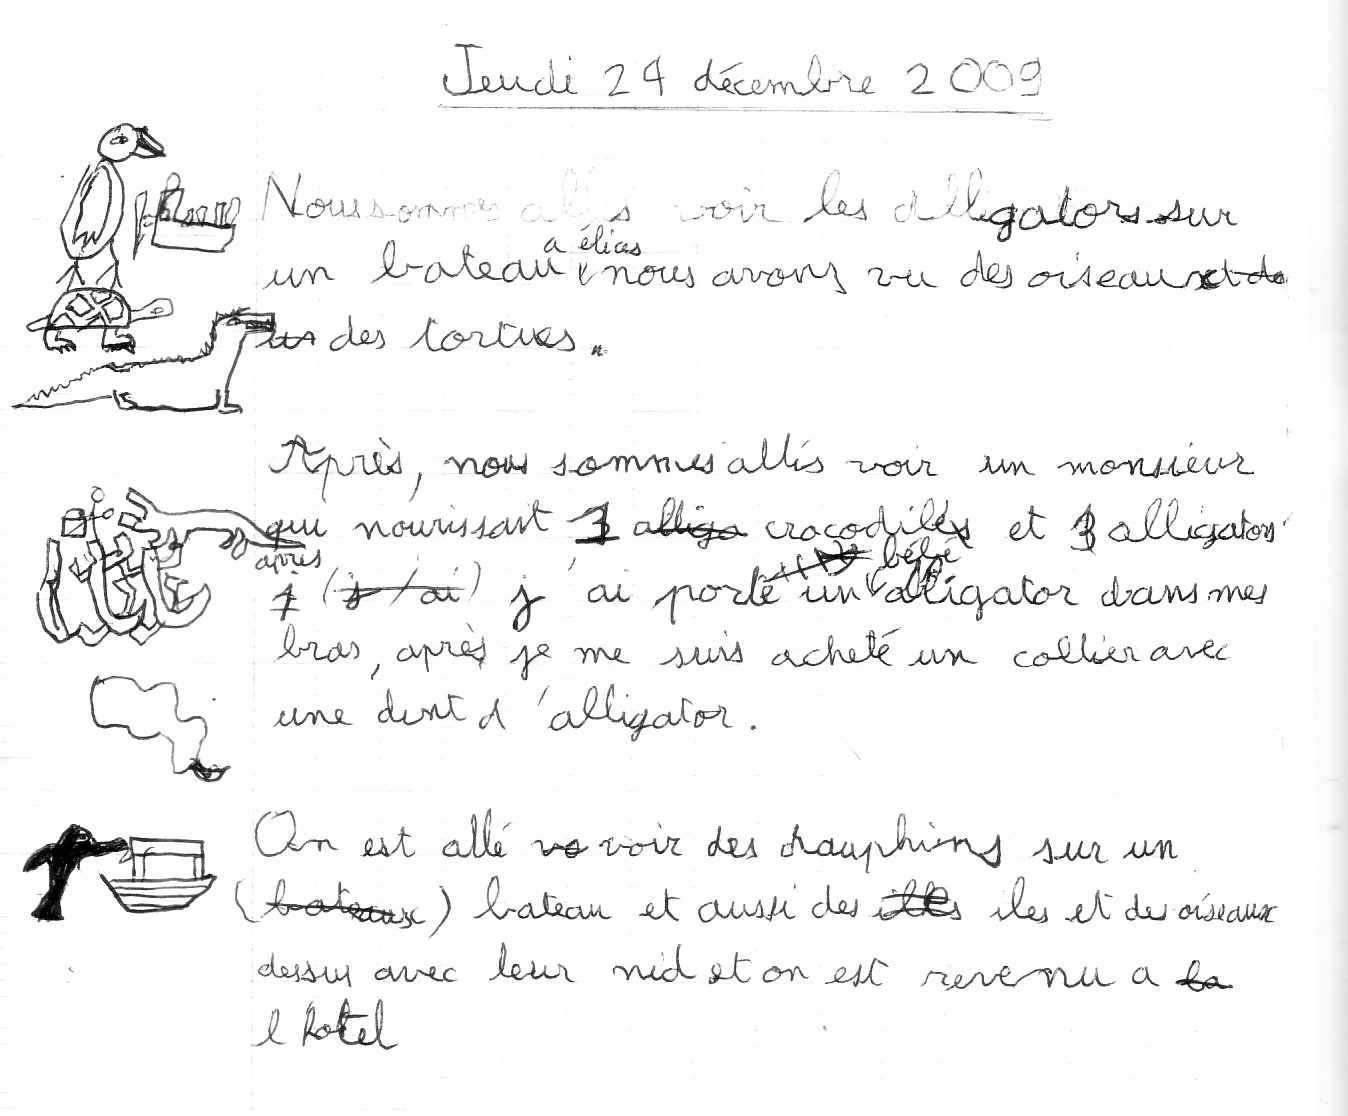 Jeudi 24 décembre 2009
Nous sommes allés voir les alligators sur
un bateau a élices nous avons vu des oiseaux et de
des tortues.
Après, nous sommes allés voir un monsieur
qui nourissait 1 alliga crocodiles et 3 alligators
après (j'ai) j'ai porté un bébé alligator dans mes
bras, après je me suis acheté un collier avec
une dent d'alligator.
On est allé vo voir des dauphins sur un
(bateaux) bateau et aussi des illes iles et des oiseaux
dessus avec leur nid et on est revenu a la
l hotel